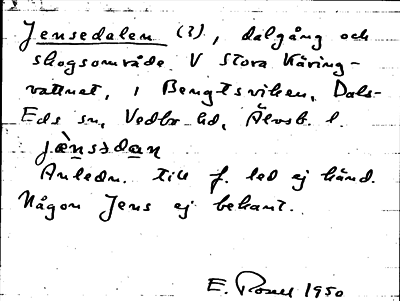 Jensedalen (?), dalgång och
skogsområde V Stora Käring-
vattnet, i Bengtsviken, Dals-
Eds sn, Vedbo hd, Älvsb. l.
jæ̀nsədan
Anledn. till f. led ej känd.
Någon Jens ej bekant.
E. Rosell 1950